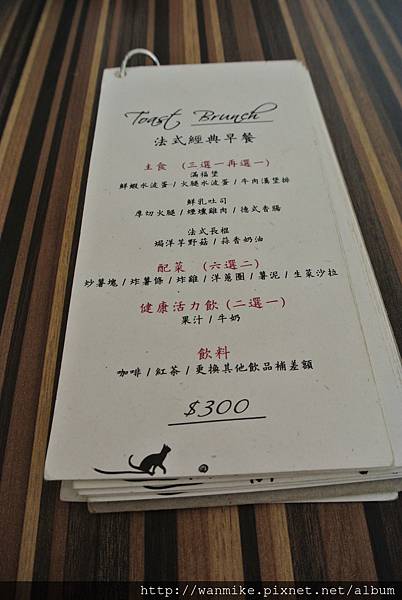 Toast Brunch
法式經典早餐
主食 (三選一再選一)
滿福堡
鮮蝦水波蛋/火腿水波蛋/牛肉漢堡排
鮮乳吐司
厚切火腿/煙燻雞肉/德式香腸
法式長棍
焗洋芋野菇/蒜香奶油
配菜 (六選二)
炒薯塊/炸薯條/炸雞/洋蔥圈/薯泥/生菜沙拉
健康活力飲(二選一)
果汁/牛奶
飲料
咖啡/紅茶/更換其他飲品補差額
$300
http://wanmike.pixnet.net/album